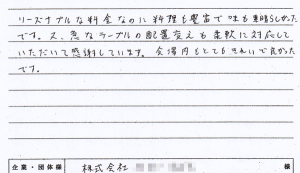 リーズナブルな料金なのに料理も豊富で味も素晴らしかった
です。又、急なテーブルの配置変えも柔軟に対応して
いただいて感謝しています。会場内もとてもきれいで良かった
です。
企業・団体様 株式会社 様